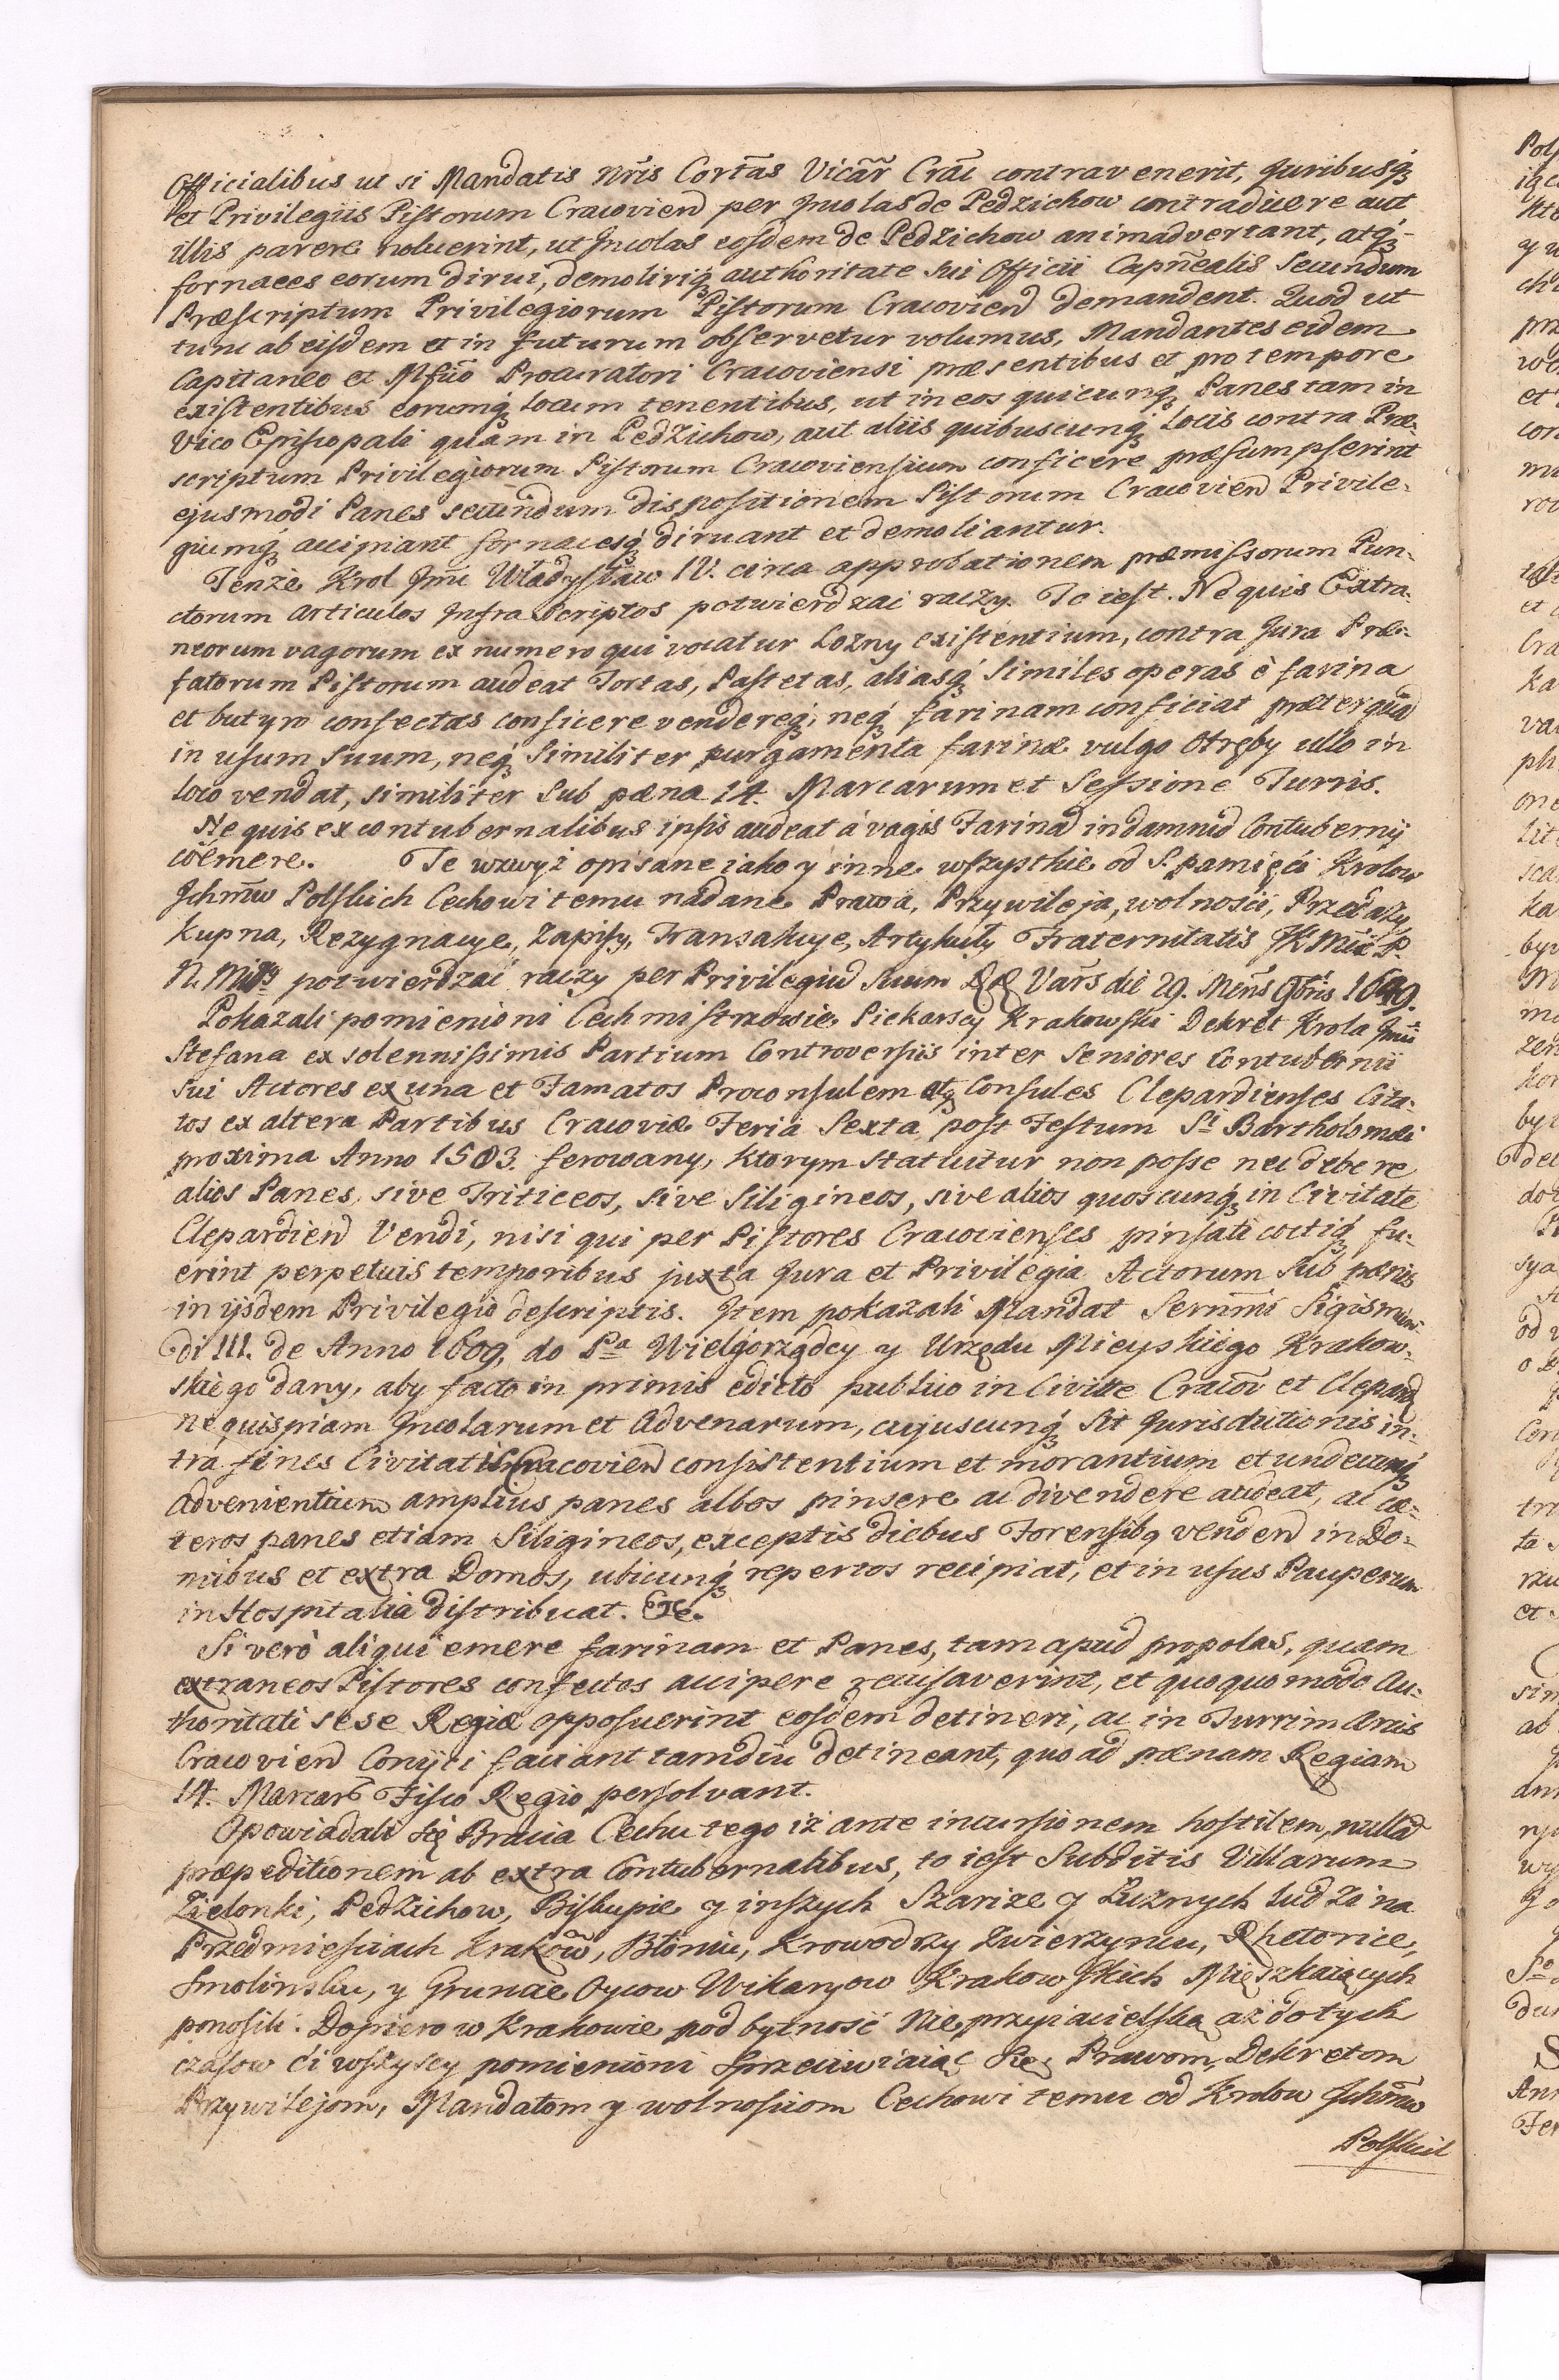 Officialibus ut si Mandatis Nrĩs Cortãs Vicãr Crãc contravenerit, Juribusq́ꝫ
et Privilegiis Pistorum Cracovien̄ per Incolas de Pedzichow contradicere aut
illis parere noluerint, ut Incolas eosdem de Pedzichow animadvertant, atq́ꝫ
fornaces eorum dirui, demoliriq́ꝫ authoritate sui Officii Capñealis secundum
Præscriptum Privilegiorum Pistorum Cracovien̄ demandent. Quod ut
tunc ab eisdem et in futurum observetur volumus, Mandantes eidem
Capitaneo et Mfĩco Procuratori Cracoviensi præsentibus et pro tempore
existentibus eorumq́ꝫ locum tenentibus, ut in eos quicunq́ꝫ Panes tam in
Vico Episcopali quàm in Pedzichow, aut aliis quibuscunq́ꝫ locis contra Præ-
scriptum Privilegiorum Pistorum Cracoviensium conficere præsumpserint
ejusmodi Panes secundum dispositionem Pistorum Cracovien̄ Privile-
giumq́ꝫ accipiant fornacesq́ꝫ diruant et demoliantur.
Tenże Krol Jm̃c Władysław IV. circa approbationem præmissorum Pun-
ctorum articulos Infra Scriptos potwierdzać raczy. To iest. Ne quis Extra-
neorum vagorum ex numero qui vocatur Lozny existentium, contra Jura Præ-
fatorum Pistorum audeat Tortas, Pastetas, aliasq́ꝫ Similes operas è farina
et butyro confectas conficere vendereq́ꝫ, neq́ꝫ farinam conficiat præterquā
in usum suum, neq́ꝫ Similiter purgamenta farinæ vulgo Otręby ullo in
loco vendat, similiter sub pæna 14. Marcarum et Sessione Turris.
Ne quis ex contubernalibus ipsis audeat á vagis Farinā in damnū Contubernij
cöemere. Te wzwyż opisane iako y inne wszystkie od S. pamięći Krolow
Jchm̃w Polskich Cechowi temu nadane Prawa, Przywileja, wolności, Przedaży,
kupna, Rezygnacye, Zapisy, Transakcye, Artykuły Fraternitatis JK Mść P.
N. Miły potwierdzać raczy per Privilegiū suum DD Vars̃ die 29. Mens̃ 9bris 1649.
Pokazali pomienioni Cechmistrzowie Piekarscy Krakowski Dekret Krola Jm̃ći
Stefana ex solennissimis Partium Controversiis inter Seniores Contubernii
sui Actores ex una et Famatos Proconsulem atq́ꝫ Consules Clepardienses Cita-
tos ex altera Partibus Cracoviæ Feria Sexta post Festum Sti Bartholomæi
proxima Anno 1583. ferowany, ktorym statuitur non posse nec debere
alios Panes, sive Triticeos, sive Siligineos, sive alios quoscunq́ꝫ in Civitate
Clepardien̄ Vendi, nisi qui per Pistores Cracovienses pinsati coctiq́ꝫ fu-
erint perpetuis temporibus juxta Jura et Privilegia Actorum sub pænis
in ijsdem Privilegio descriptis. Item pokazali Mandat Serenm̃i Sigismun-
di III. de Anno 1609. do Pa Wielgorządcy y Urzędu Mieyskiego Krakow-
skiego dany, aby facto in primis edicto publico in Civitte Cracov̄ et Clepard̄
ne quispiam Incolarum et Advenarum, cujuscunq́ꝫ sit Jurisdictionis in-
tra fines Civitatis Cracovien̄ consistentium et morantium et undecunq́ꝫ
Advenientium amplius panes albos pinsere ac divendere audeat, ac cæ-
teros panes etiam Siligineos, exceptis diebus Forensibꝫ venden̄ in Do-
mibus et extra Domos, ubicunq́ꝫ repertos recipiat, et in usus Pauperum
in Hospitalia distribuat. Etc.
Si verò aliqui emere farinam et Panes, tam apud propolas, quam
extraneos Pistores confectos accipere recusaverint, et quoquo modo Au-
thoritati sese Regiæ opposuerint eosdem detineri, ac in Turrim Arcis
Cracovien̄ Conijci faciant tamdiu detineant, quo ad pænam Regiam
14. Marcar̄ Fisco Regio persolvant.
Opowiadali się Bracia Cechu tego iż ante incursionem hostilem, nullā
præpeditionem ab extra Contubernalibus, to iest Subditis Villarum
Zielonki, Pedzichow, Biskupie y inszych Szarize y Luznych ludzi na
Przedmieściach Krakow̃, Błoniu, Krowodrzy Zwierzyncu, Rhetorice,
Smolinsku, y Gruncie Oycow Wikaryow Krakowskich Mięszkaiących
ponosili. Dopiero w Krakowie pod bytność Nieprzyiacielską aż do tych
czasow ci wszyscy pomienioni sprzeciwiaiąc się Prawom, Dekretom
Przywilejom, Mandatom y wolnościom Cechowi temu od Krolow Jchm̃w
Polskich